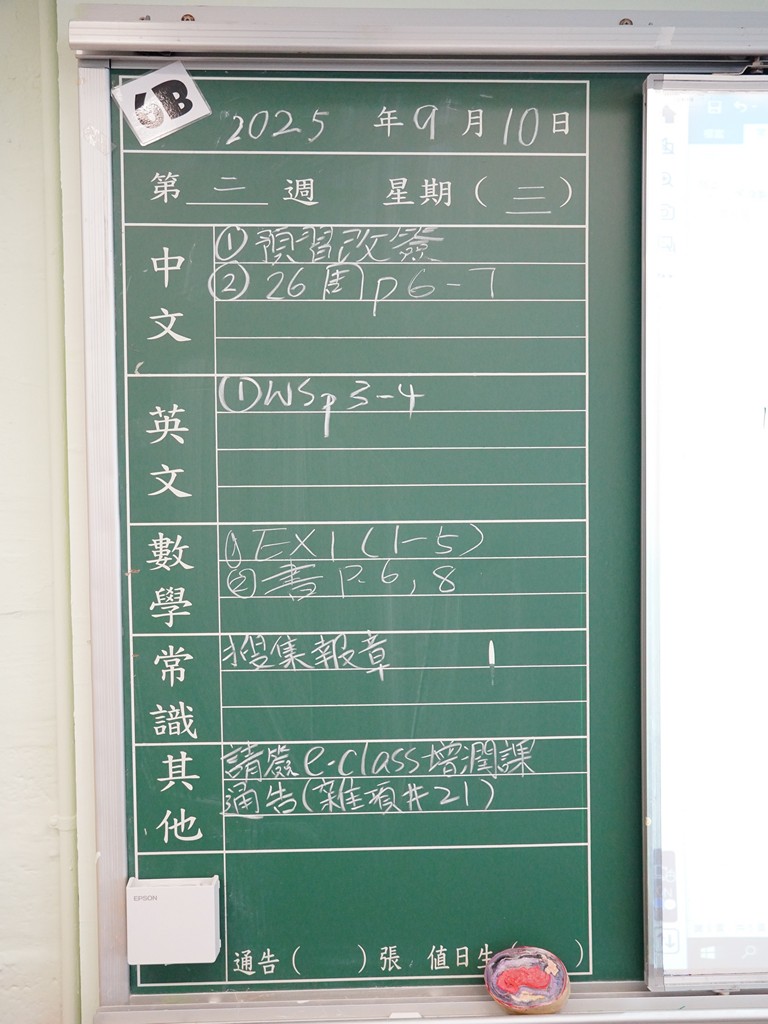 6B
2025 年 9 月 10 日
第 二 週 星期 ( 三 )
中文
① 預習改簽
② 26周 p6-7
英文
① WS p3-4
數學
① EX1 (1-5)
② 書 P.6, 8
常識
搜集報章
其他
請簽e-class增潤課
通告(雜項#21)
EPSON
通告 ( ) 張 值日生 ( )